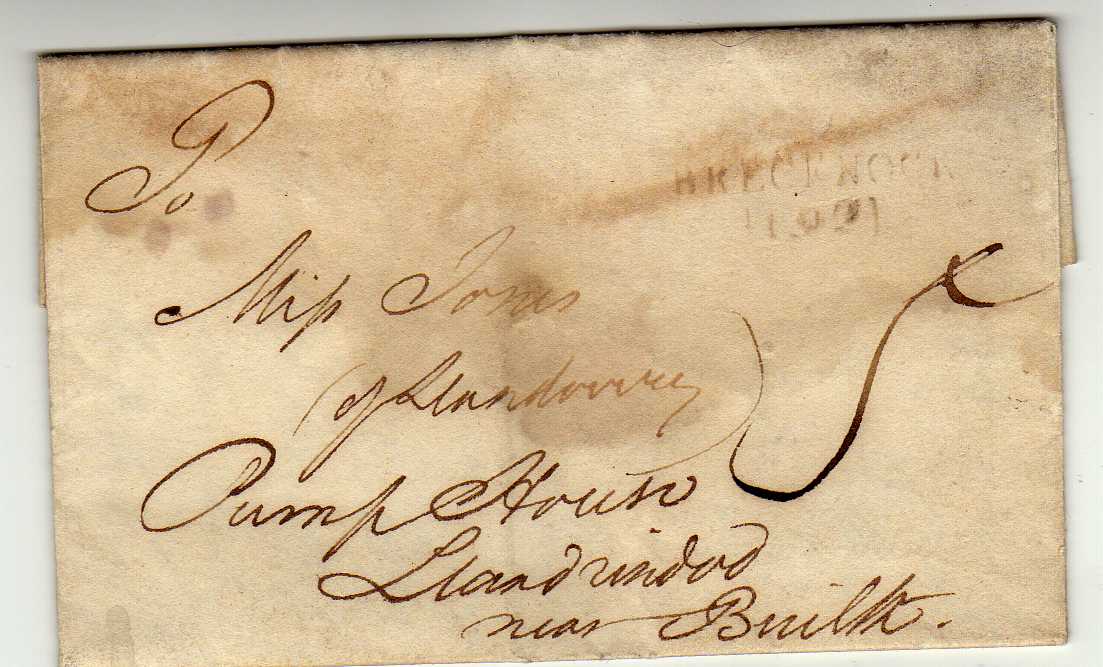 To
BRECKNOCK
Miss Jones
(of Llandovery)
Pump House
Llandrindod
near Builth.